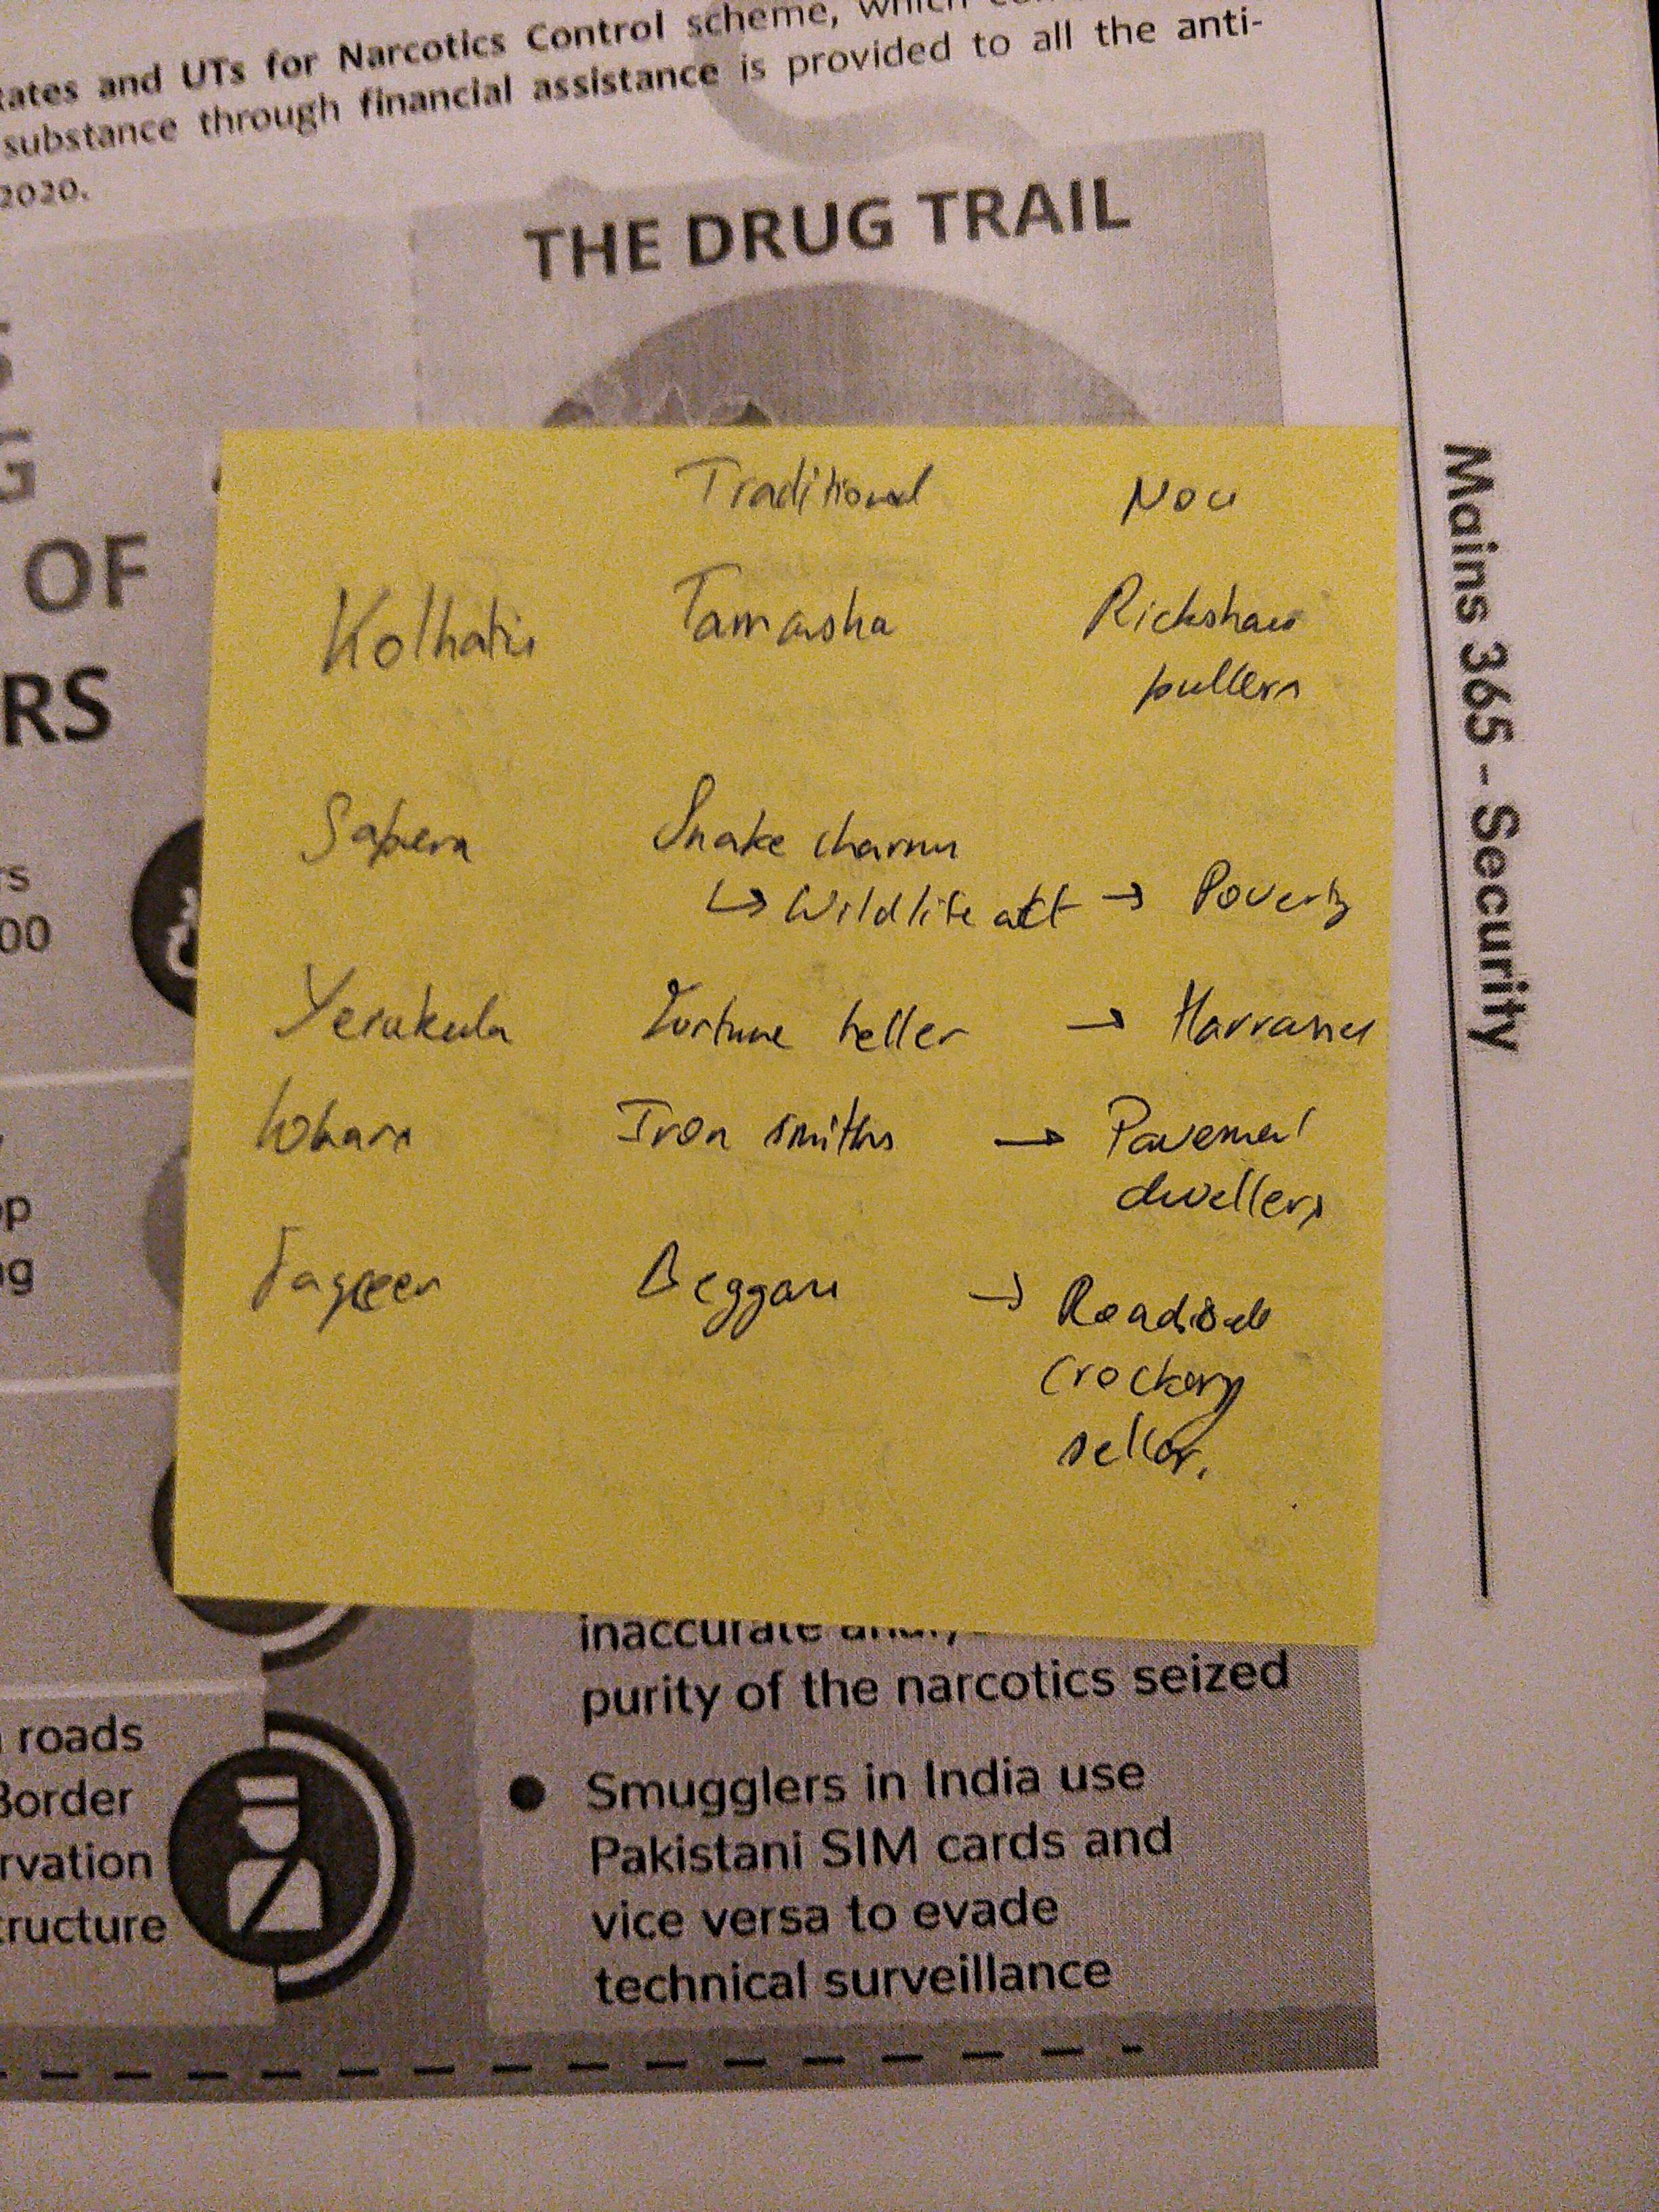 scheme, which
tates and UTs for Narcotics Control scheme, which
substance through financial assistance is provided to all the anti-
2020.
THE DRUG TRAIL
G
OF
RS
rs
00
op
ng
Traditional Now
Kolhatis Tamasha Rickshaw
pullers
Sapera Snake charm
↳ Wildlife act → Poverty
Yerukula Fortune teller → Harrasses
lohars Iron smiths → Pavement
dwellers
Faqeer Beggars → Roadside
Crockery
seller.
inaccurate
purity of the narcotics seized
roads
Border
rvation
tructure
● Smugglers in India use
Pakistani SIM cards and
vice versa to evade
technical surveillance
Mains 365 - Security